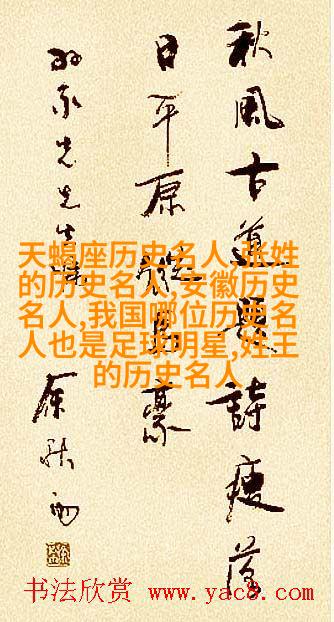 秋風古道題詩瘦落
日平原縱馬豪
先生
余秋雨
天蝎座历史名人,张姓
的历史名人,安徽历史
名人,我国哪位历史名
人也是足球明星,姓王
的历史名人
书法欣赏 www.yac8.com